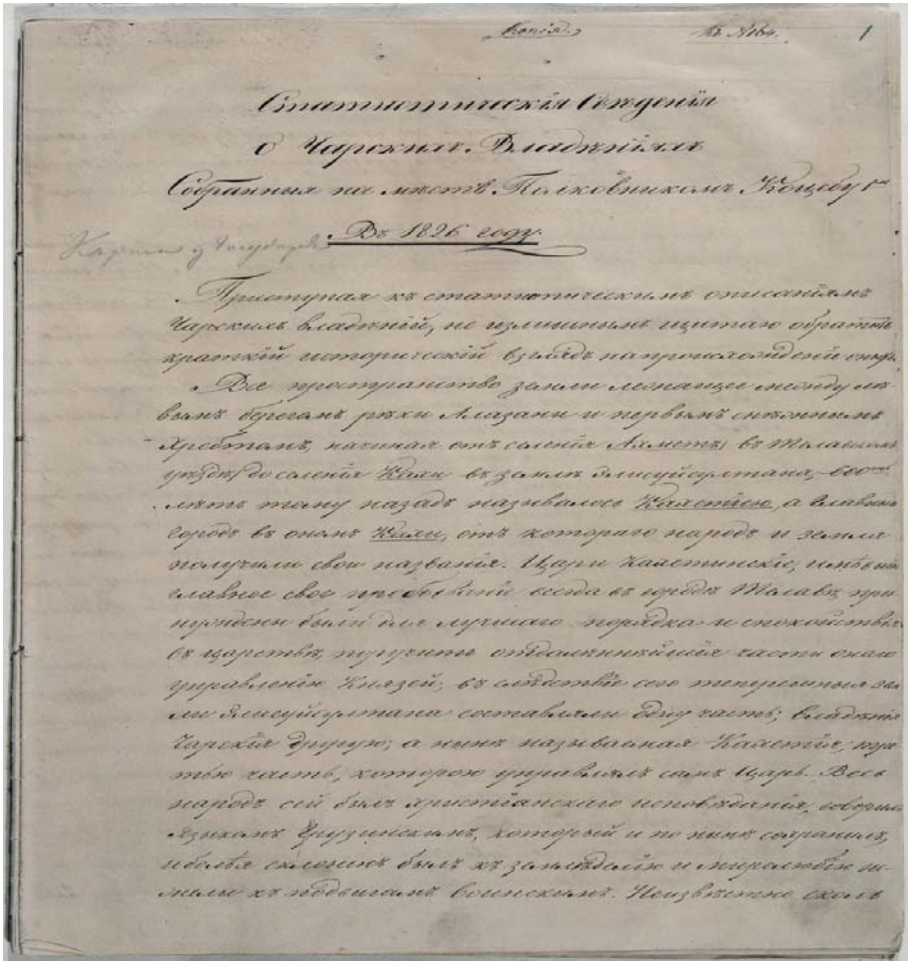 Копія.
къ №64.
1
Статистическія Сведенія
о Чарскихъ Владѣніяхъ
Собранныя на мѣстѣ Полковникомъ Коцебу 1мъ
Въ 1826 году.
Карта у
Приступая къ статистическимъ описаніямъ
Чарскихъ владѣній, не излишнымъ щитаю обратить
краткій историческій взглядъ на происхожденій оныхъ.
Все пространство земли лежащее между лѣ-
вымъ берегомъ рѣки Алазани и первымъ снѣжнымъ
хребтомъ, начиная отъ селенія Ахметъ, въ Телавскомъ
уѣздѣ, до селенія Кахи въ землѣ Элисуйсултана,
лѣтъ тому назадъ называлось Кахетіею, а Главный
Городъ въ ономъ Кахи, отъ котораго народъ и земля
получили свои названія. Цари Кахетинскіе, имѣвши
главное свое пребываній всегда въ городѣ Телавѣ, при-
нуждены были для лучшаго порядка и спокойствія
въ царствѣ, поручить отдаленнѣйшія части онаго
управленію Князей; въ слѣдствій сего теперешныя зем-
ли Элисуйсултана составляли одну часть; владѣнія
Чарскія другую; а нынѣ называемая Кахетія, тре-
тью часть, которою управлялъ самъ Царь. Весь
народъ сей былъ христіанскаго исповѣданія, говорилъ
языкомъ Грузинскимъ, который и по нынѣ сохранилъ,
и болѣе склоненъ былъ къ земледѣлію и миролюбію не-
жели къ подвигамъ воинскимъ. Неизвѣстно сколь